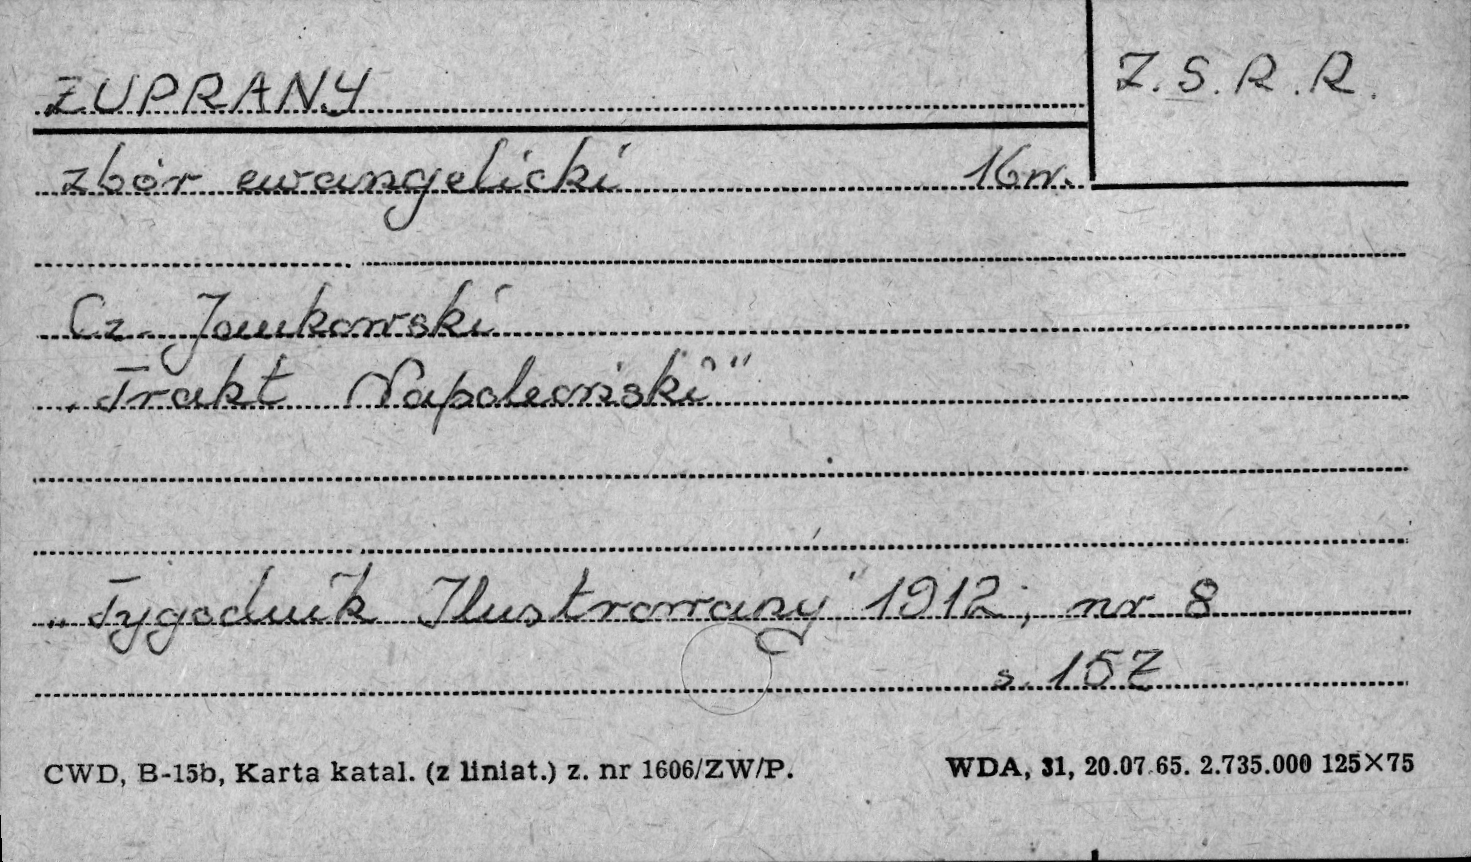 ZUPRANY
Z.S.R.R.
zbór ewangelicki 16 w.
Cz. Jankowski
„Trakt Napoleoński"
„Tygodnik Ilustrowany" 1912, nr 8
s. 157
CWD, B-15b, Karta katal. (z liniat.) z. nr 1606/ZW/P.
WDA, 31, 20.07.65. 2.735.000 125×75